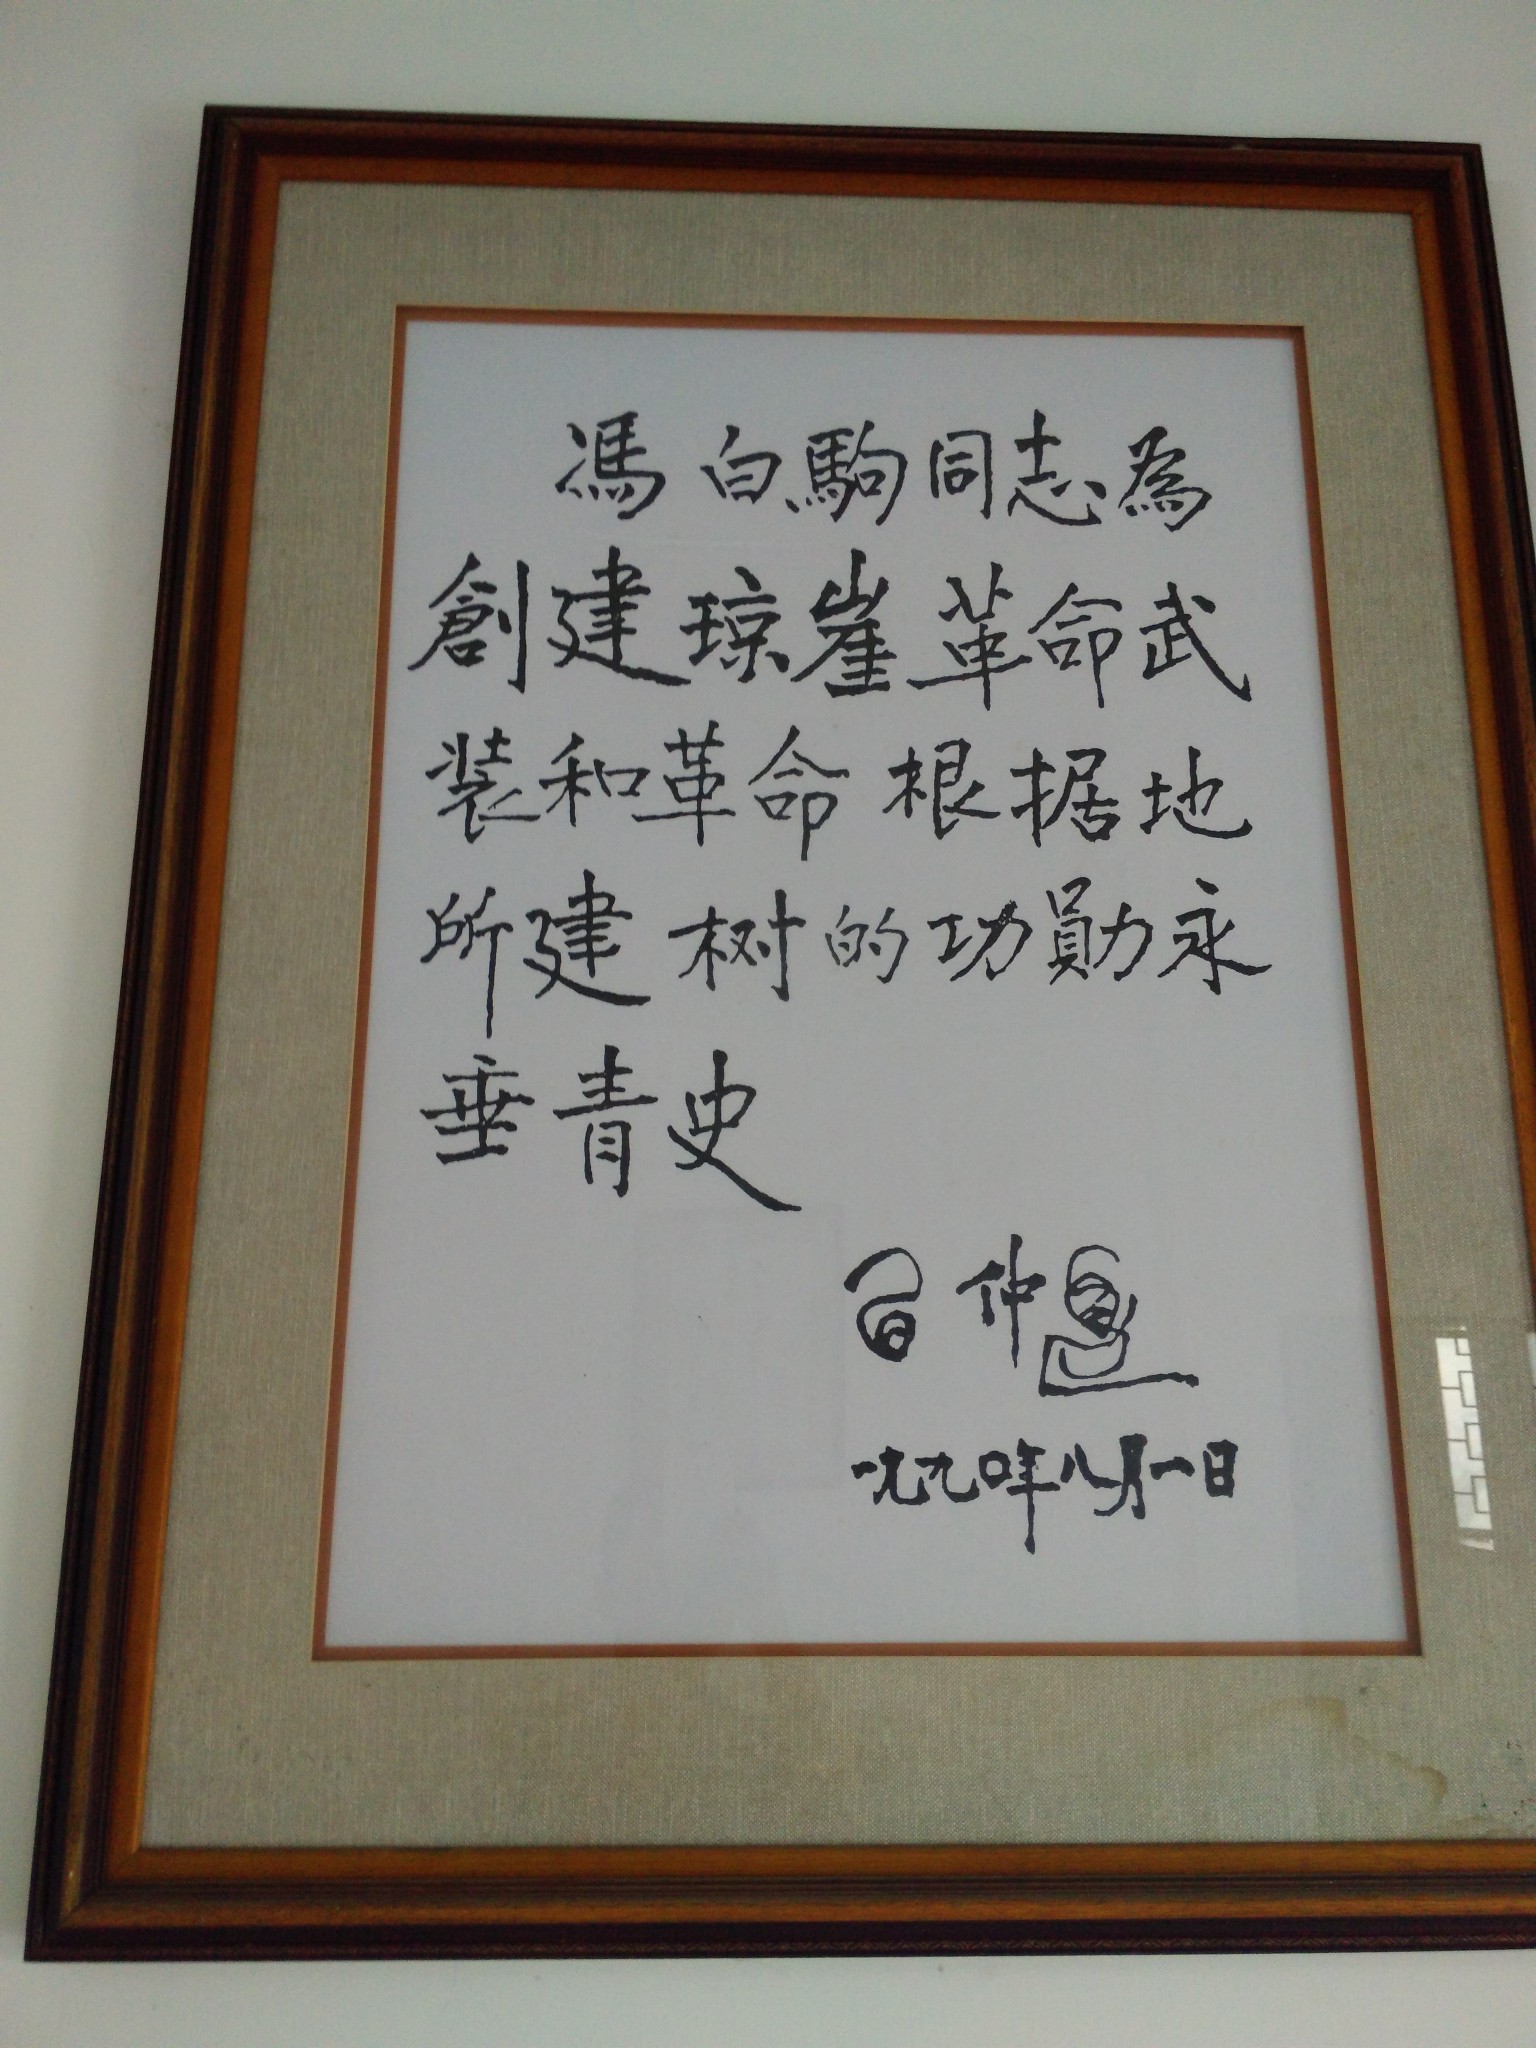 馮白駒同志為
創建琼崖革命武
装和革命根据地
所建树的功勛永
垂青史
习仲勋
一九九〇年八月一日